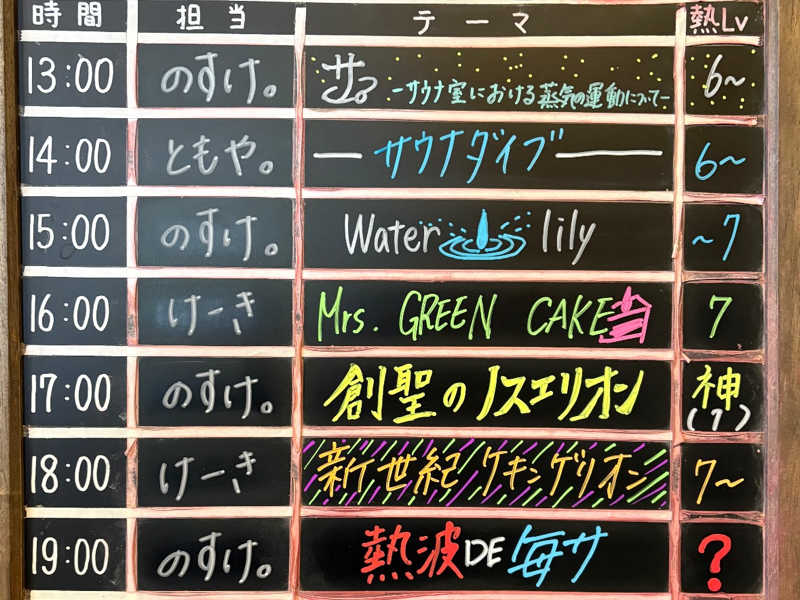 時間 担当 テーマ 熱Lv
13:00 のすけ。 サ。 -サウナ室における蒸気の運動について- 6~
14:00 ともや。 ― サウナダイブ ― 6~
15:00 のすけ。 Water lily ~7
16:00 けーき Mrs. GREEN CAKE 7
17:00 のすけ。 創聖のノスエリオン 神(7)
18:00 けーき 新世紀ケキンゲリオン 7~
19:00 のすけ。 熱波DE毎サ ?